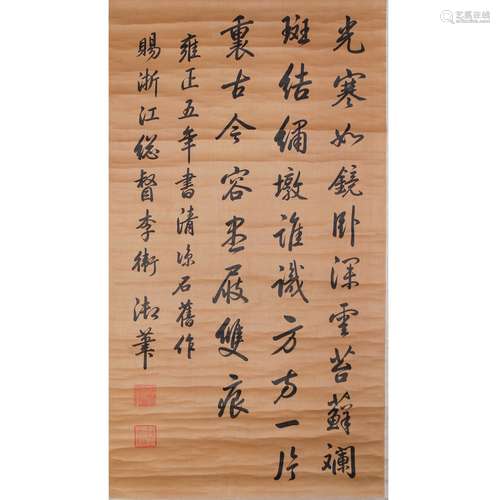 光寒如鏡臥深雲苔蘚斕
斑結繡墩誰識方方一片
裏古今容盡屐雙痕
雍正五年書清凉石舊作
賜浙江総督李衛 御筆